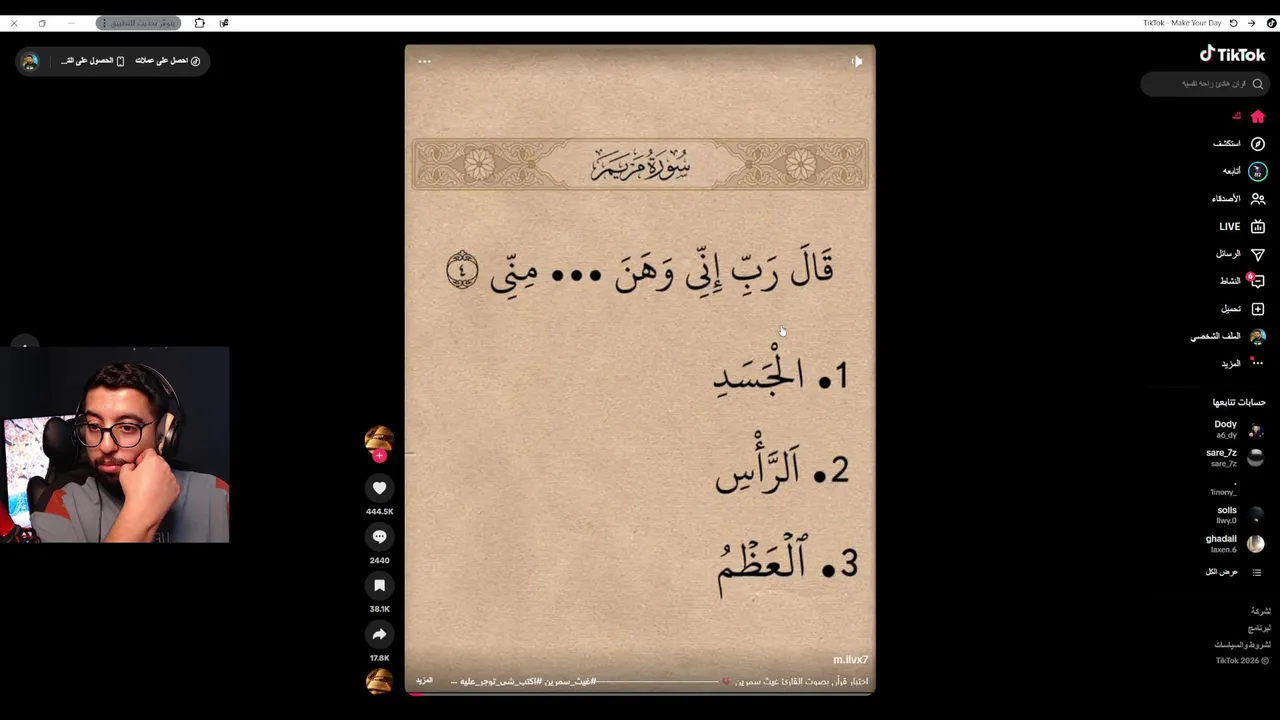 يتوفر تحديث للتطبيق
TikTok - Make Your Day
TikTok
احصل على عملات
الحصول على الت...
قرآن هادئ راحه نفسيه
لك
استكشف
أتابعه
الأصدقاء
LIVE
الرسائل
النشاط
6
تحميل
الملف الشخصي
المزيد
حسابات تتابعها
Dody
a6_dy
sare_7z
sare_7z
.
1inony_
solis
llwy.0
ghadali
laxen.6
عرض الكل
الشركة
البرنامج
الشروط والسياسات
TikTok 2026 ©
سُورَةُ مَرْيَمَ
قَالَ رَبِّ إِنِّي وَهَنَ ●●● مِنِّي ٤
1• الْجَسَدِ
2• اَلرَّأْسِ
3• ٱلْعَظْمُ
444.5K
2440
38.1K
17.8K
m.ilvx7
اختبار قرآن بصوت القارئ غيث سمرين #غيث_سمرين #اكتب_شي_توجر_عليه ...
المزيد